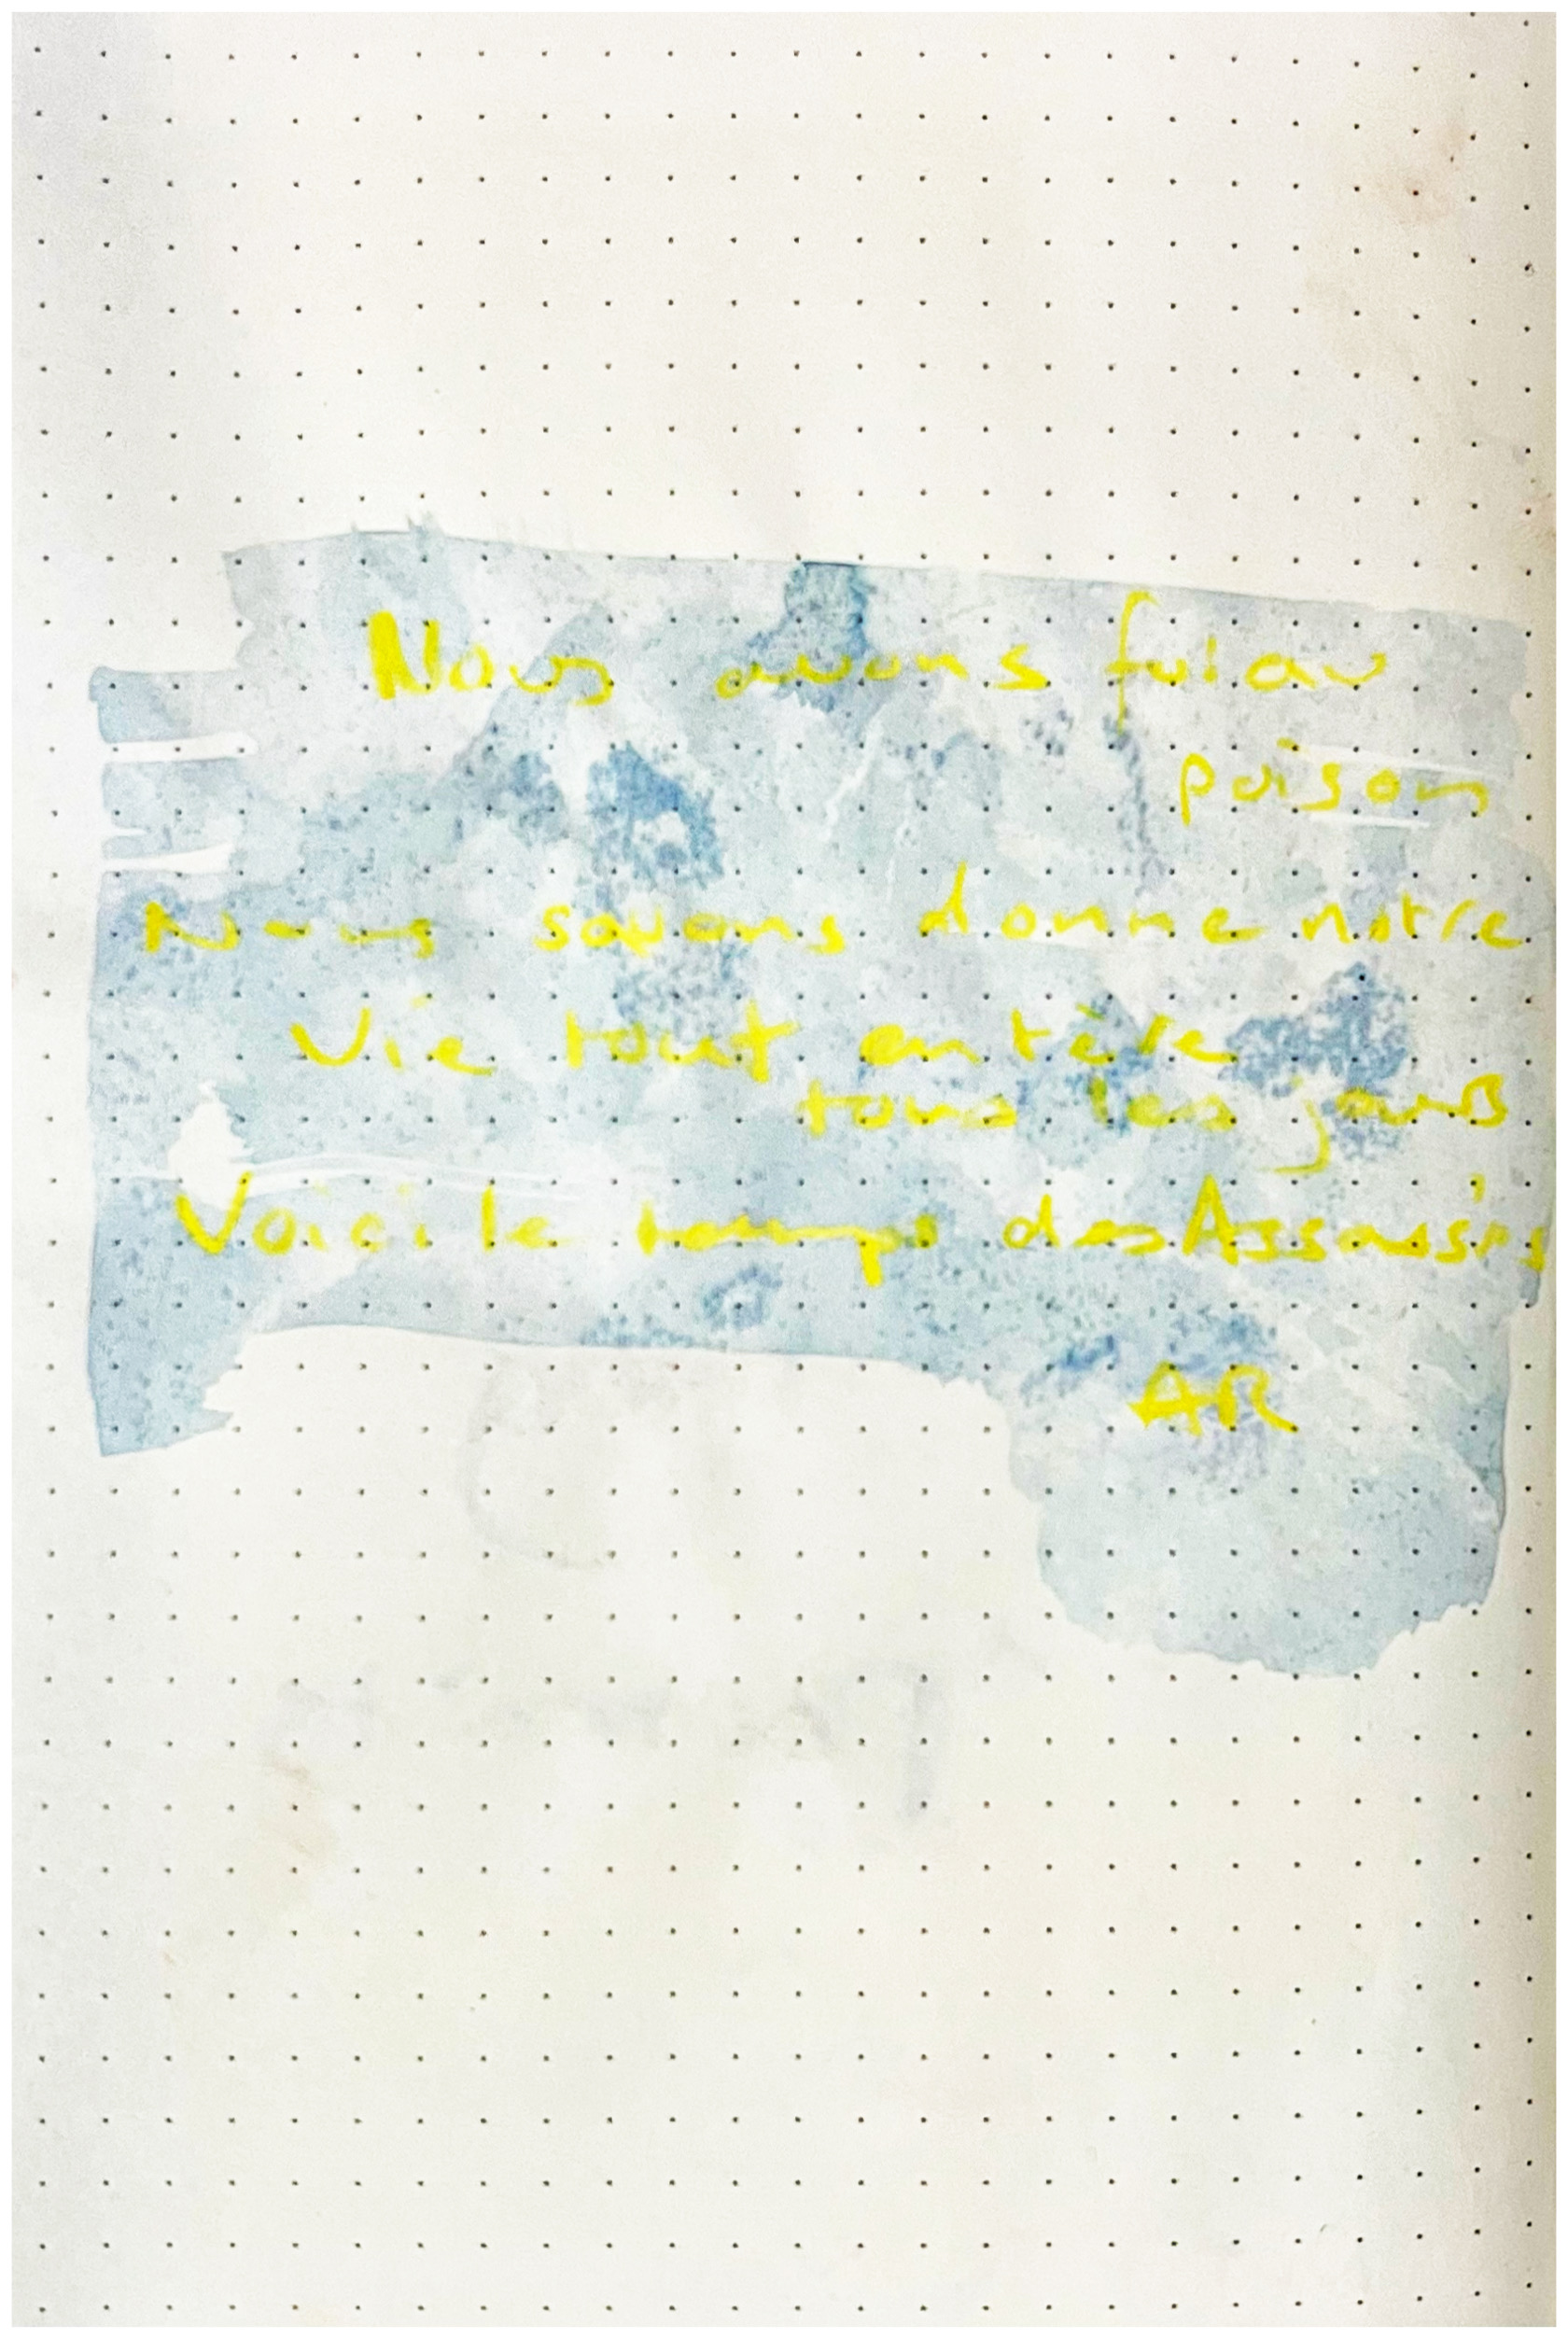 Nous avons foi au
poison
Nous savons donne notre
Vie tout entère
tous les jours
Voici le temps des Assassins
AR